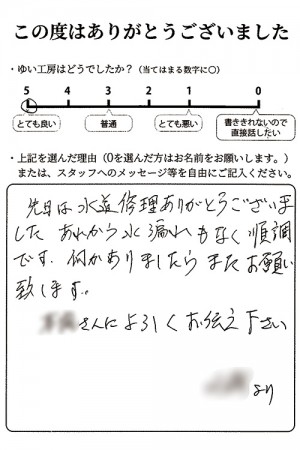 この度はありがとうございました
・ゆい工房はどうでしたか？（当てはまる数字に○）
5 4 3 2 1 0
とても良い 普通 とても悪い 書ききれないので直接話したい
・上記を選んだ理由（0を選んだ方はお名前をお願いします。）
または、スタッフへのメッセージ等を自由にご記入ください。
先日は水道修理ありがとうございま
した あれから水漏れもなく順調
です。何かありましたらまたお願い
致します。
さんによろしくお伝え下さい
より